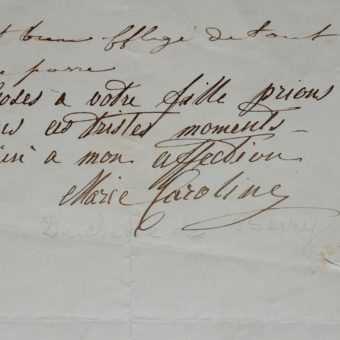 t bien affligé de tout
e passe
oses a votre fille prions
us ces tristes moments
a mon affection
Marie Caroline
Duchesse de Berry